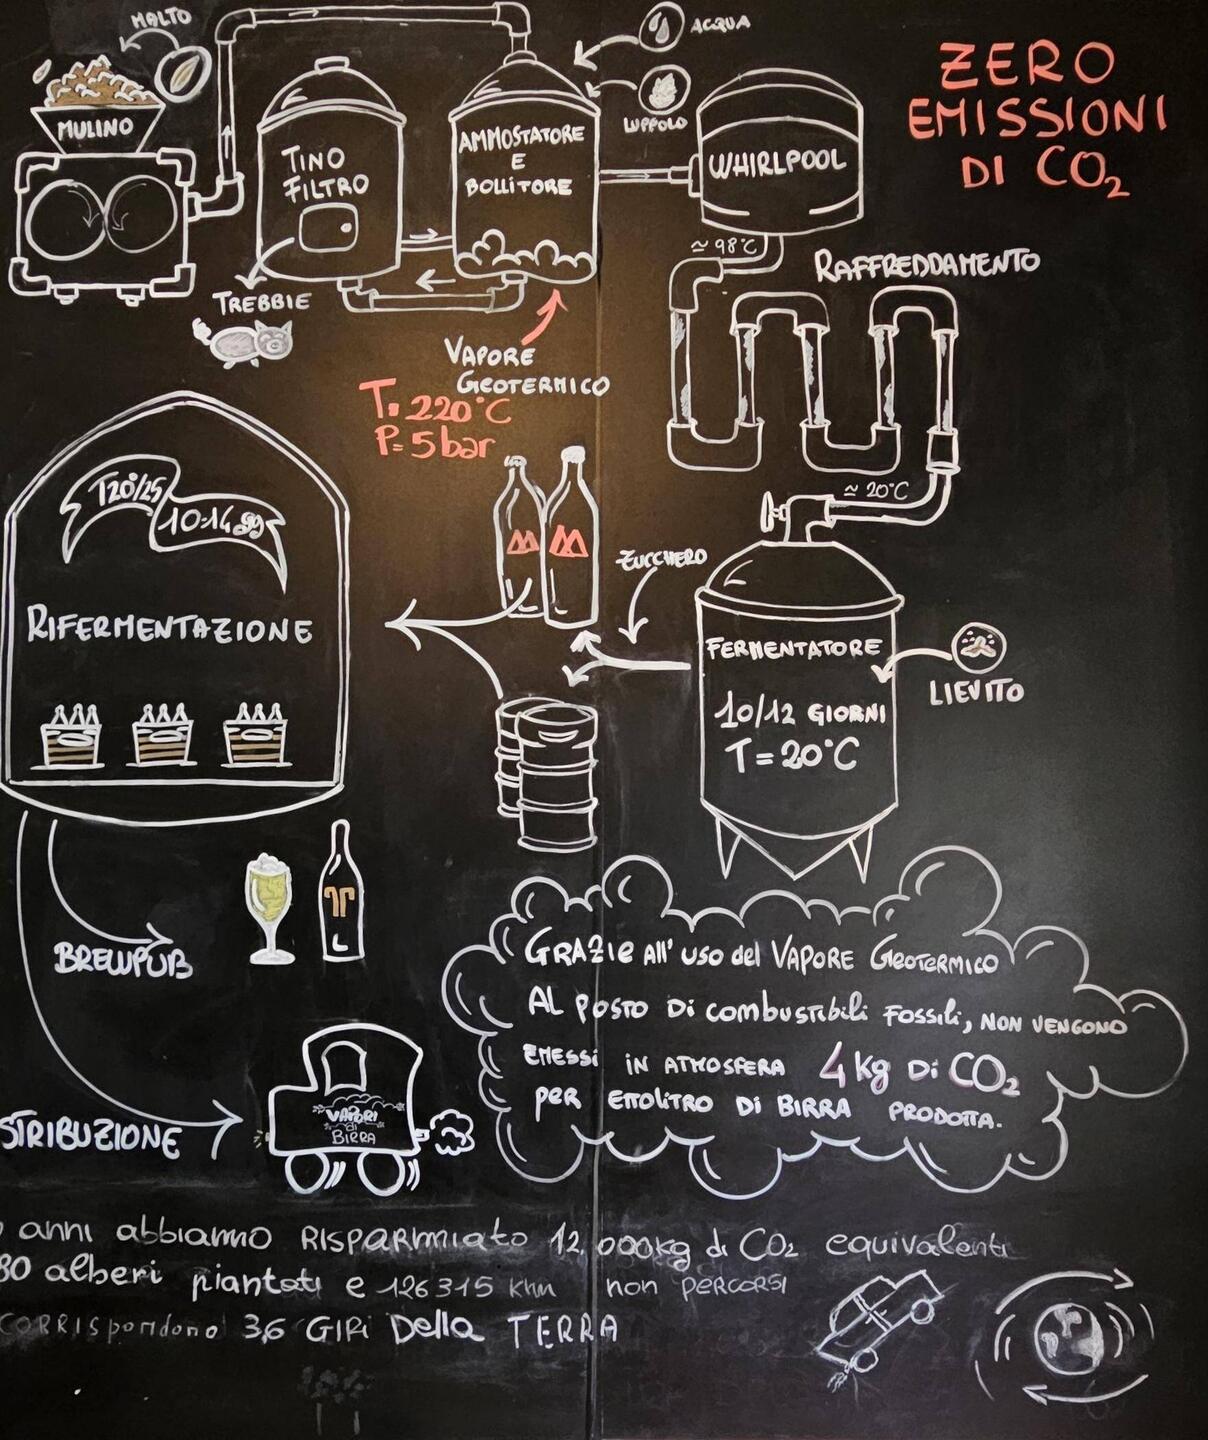 MALTO
ACQUA
ZERO
EMISSIONI
DI CO₂
LUPPOLO
MULINO
TINO
FILTRO
AMMOSTATORE
E
BOLLITORE
WHIRLPOOL
≃ 98°C
RAFFREDDAMENTO
TREBBIE
VAPORE
GEOTERMICO
T= 220°C
P= 5 bar
≃ 20°C
T20°/25
10-14 gg
ZUCCHERO
RIFERMENTAZIONE
FERMENTATORE
10/12 GIORNI
T= 20°C
LIEVITO
BREWPUB
GRAZIE All' USO del VAPORE GEOTERMICO
AL POSTO DI combustibili FOSSili, NON VENGONO
EMESSI IN ATMOSFERA 4 kg DI CO₂
PER ETTOLITRO DI BIRRA PRODOTTA.
VAPORI
di
BIRRA
STRIBUZIONE
anni abbiamo RISPARMIATO 12,000kg di CO₂ equivalenti
80 alberi piantati e 126315 khm non PERCORSI
CORRISpondono 3,6 GIRI Della TERRA